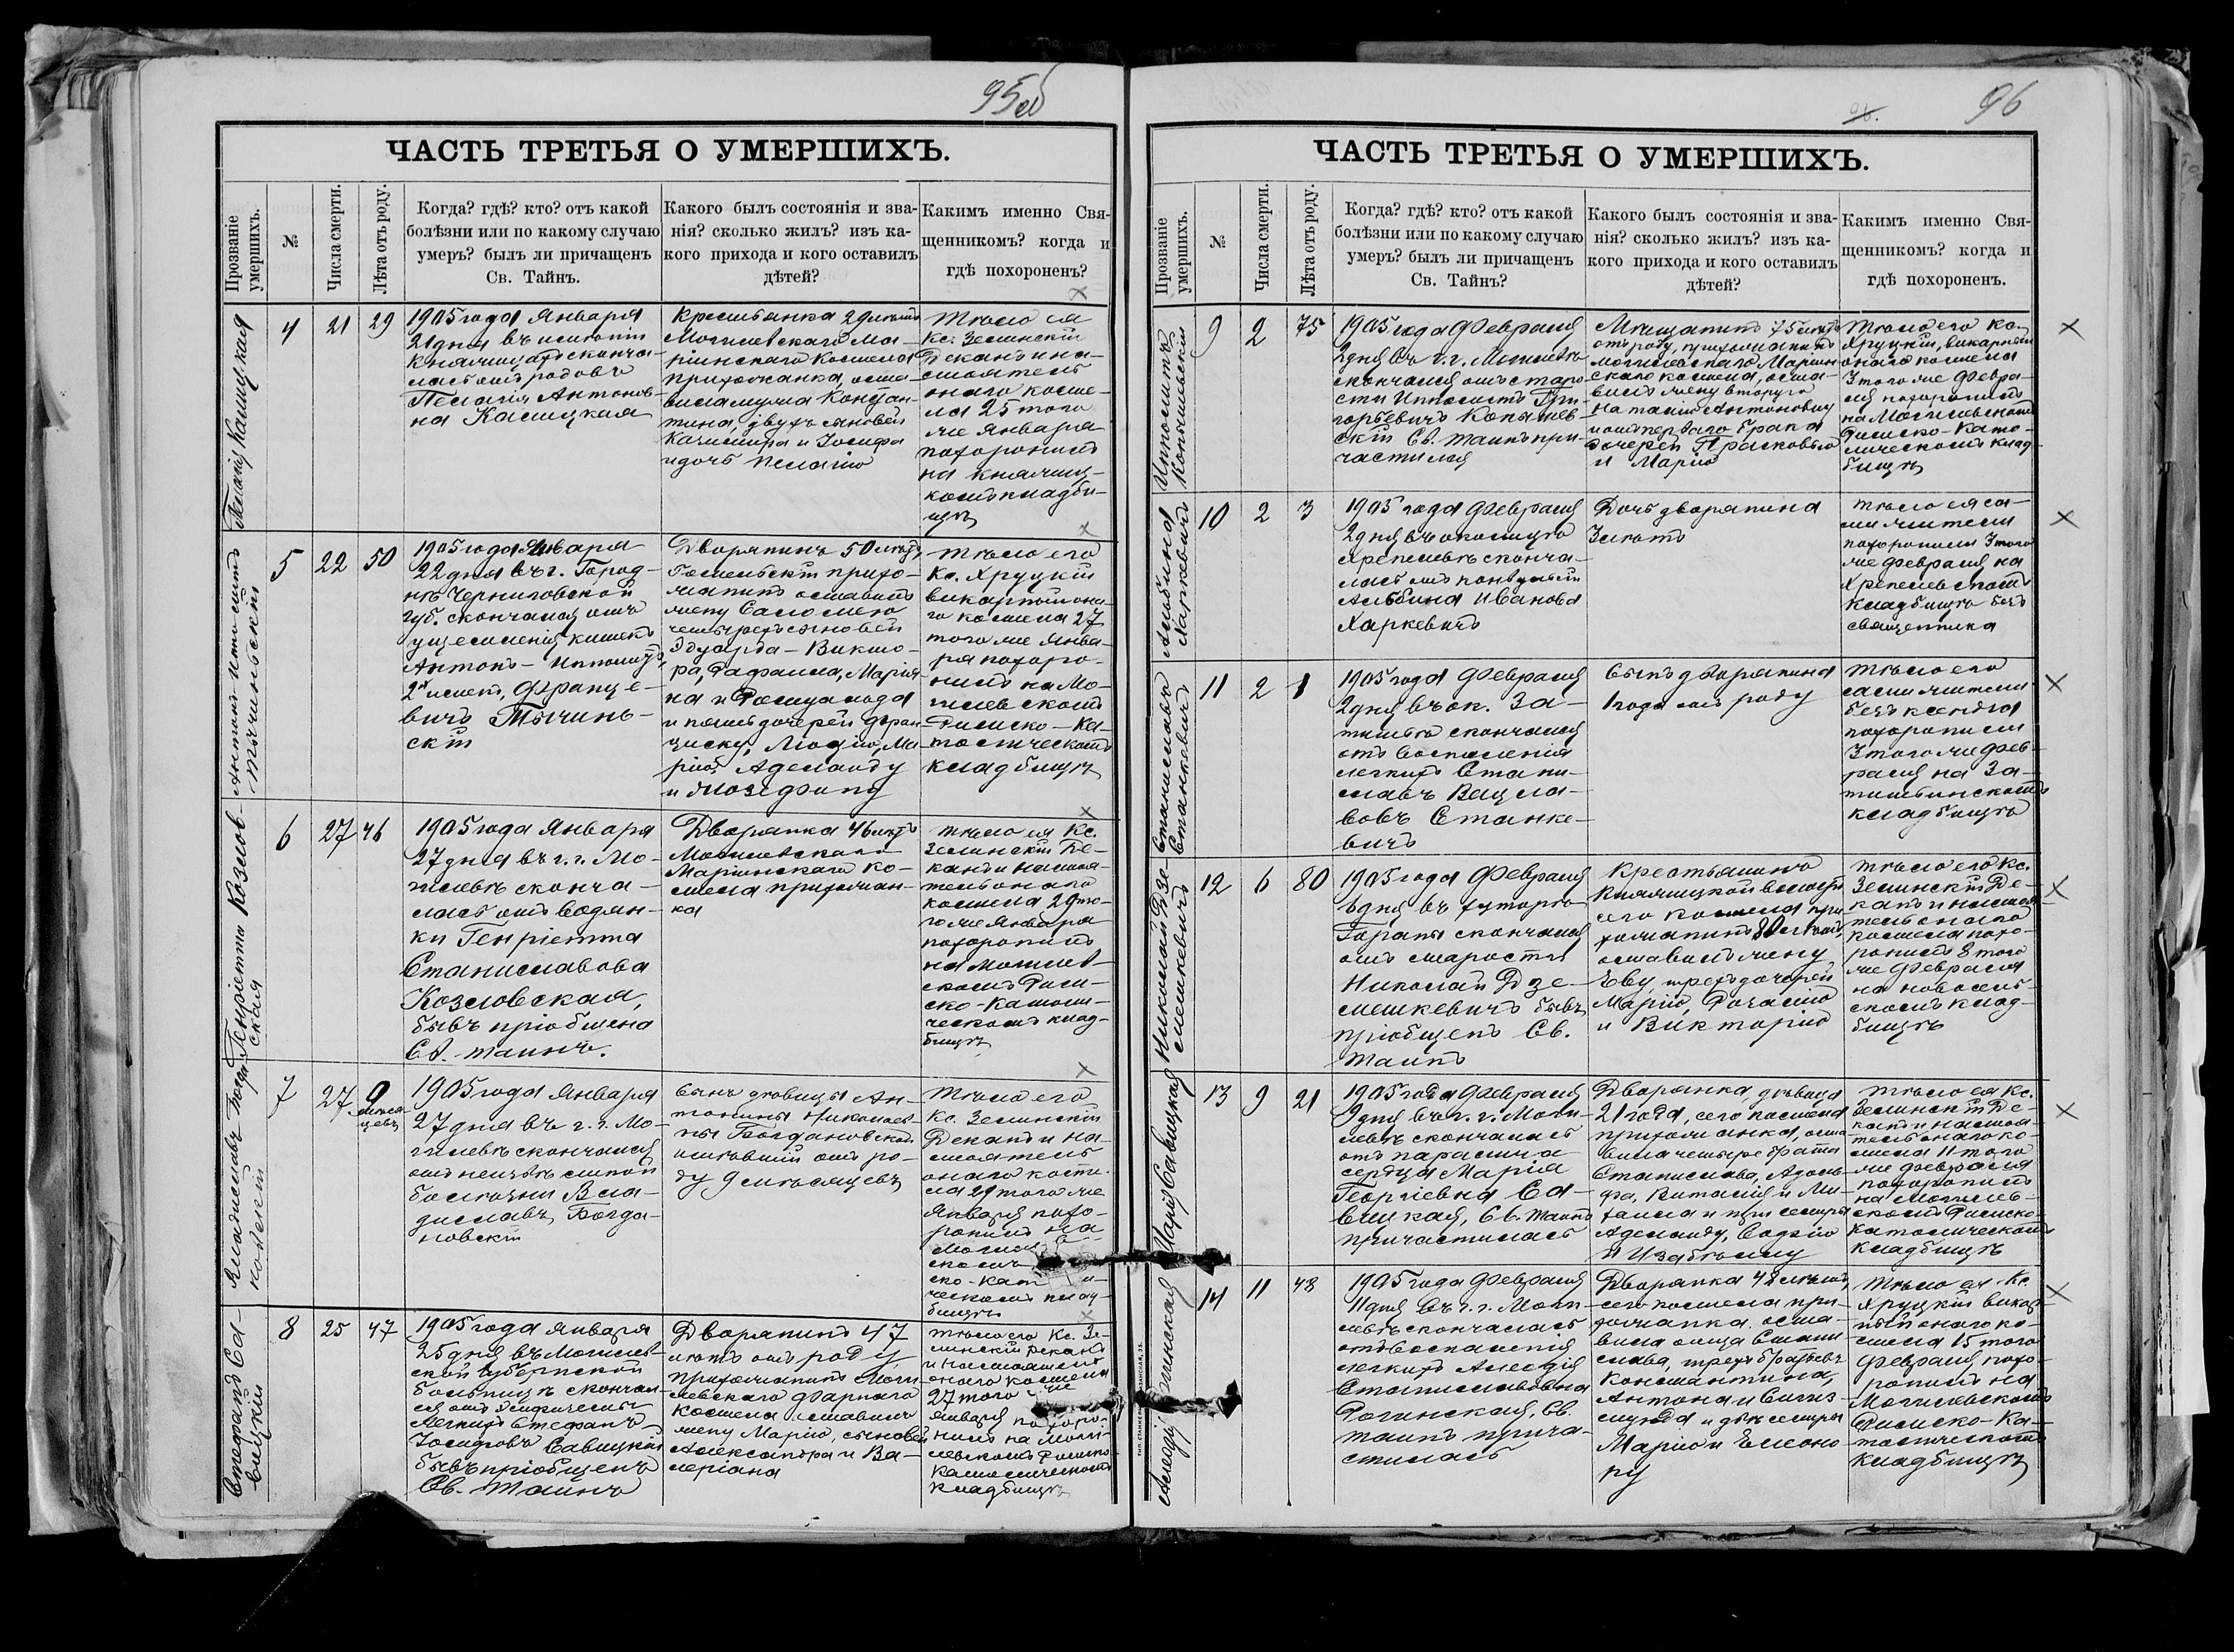 95об
ЧАСТЬ ТРЕТЬЯ О УМЕРШИХЪ.
Прозваніе умершихъ.
№
Числа смерти.
Лѣта отъ роду.
Когда? гдѣ? кто? отъ какой
болѣзни или по какому случаю
умеръ? былъ ли причащенъ
Св. Тайнъ.
Какого былъ состоянія и зва-
нія? сколько жилъ? изъ ка-
кого прихода и кого оставилъ
дѣтей?
Какимъ именно Свя-
щенникомъ? когда и
гдѣ похороненъ?
Пелагія Касицкая
4
21
29
1905 года Января
21 дня въ
скончa-
лась отъ родовъ
Пелагія Антонов-
на Касицкая
Крестьянка 29 лѣтъ
Могилевскаго Ма-
ріинскаго костела
прихожанка, оста-
вила мужа Констан-
тина, двухъ сыновей
Казимира и Іосифа
и дочь Пелагію
Тѣло ея
Кс. Зелинскій
Деканъ и на-
стоятель
онаго косте-
ла 25 того
же Января
похоронилъ
на Княжиц-
комъ кладби-
щѣ
Антонъ Ипполитъ
Тычиньскій
5
22
50
1905 года Января
22 дня въ г. Город-
нѣ Черниговской
губ. скончался отъ
ущемленія кишекъ
Антонъ-Ипполитъ
2хъ именъ, Францe-
вичъ Тычинь-
скій
Дворянинъ 50 лѣтъ
Гомельскій прихо-
жанинъ оставилъ
жену Саломею
четырехъ сыновей
Эдуарда-Викто-
ра, Рафаила, Мария-
на и Ромуальда
и пять дочерей Фран
циску, Люцію, Ма
рію, Аделаиду
и Жозефину
Тѣло его
Кс. Хруцкій
викарный она-
го костела 27
того же Янва-
ря похоро-
нилъ на Мо-
гилевскомъ
Римско-Ка-
толическомъ
кладбищѣ
Генріетта Козлов-
ская
6
27
46
1905 года Января
27 дня въ г. г. Мо-
гилевѣ сконча-
лась отъ водян-
ки Генріетта
Станиславова
Козловская,
бывъ пріобщена
Св. таинъ.
Дворянка 46 лѣтъ
Могилевскаго
Маріинскаго ко-
стела прихожан-
ка
Тѣло ея Кс.
Зелинскій Де-
канъ и настоя-
тель онаго
костела 29 то-
го же Января
похоронилъ
на Могилев-
скомъ Рим-
ско-Католи-
ческомъ клад-
бищѣ
Владиславъ Богда
новскій
7
27
9
мѣся-
цевъ
1905 года Января
27 дня въ г. г. Мо-
гилевѣ скончался
отъ неизвѣстной
болѣзни Вла-
диславъ Богда-
новскій
Сынъ дѣвицы Ан-
тонины Николаев-
ны Богдановской
имѣвшій отъ ро-
ду 9 мѣсяцевъ
Тѣло его
Кс. Зелинскій
Деканъ и на-
стоятель
онаго косте-
ла 29 того же
Января похо-
ронилъ на
Могилев-
скомъ
ско-Кат
ческомъ клад-
бищѣ
Стефанъ Са-
вицкій
8
25
47
1905 года Января
25 дня въ Могилев-
ской губернской
больницѣ скончал-
ся отъ эмфиземы
легкихъ Стефанъ
Іосифовъ Савицкій
бывъ пріобщенъ
Св. Таинъ
Дворянинъ 47
лѣтъ отъ роду
прихожанинъ Моги-
левскаго фарнаго
костела оставилъ
жену Марію, сыновей
Александра и Ва-
леріана
Тѣло его Кс. Зе-
линскій Деканъ
и настоятель
онаго костела
27 того же
Января похоро-
нилъ на Моги-
левскомъ Римско-
Католическомъ
кладбищѣ
96.
96
ЧАСТЬ ТРЕТЬЯ О УМЕРШИХЪ.
Прозваніе умершихъ.
№
Числа смерти.
Лѣта отъ роду.
Когда? гдѣ? кто? отъ какой
болѣзни или по какому случаю
умеръ? былъ ли причащенъ
Св. Тайнъ?
Какого былъ состоянія и зва-
нія? сколько жилъ? изъ ка-
кого прихода и кого оставилъ
дѣтей?
Какимъ именно Свя-
щенникомъ? когда и
гдѣ похороненъ.
Ипполитъ
Копычевскій
9
2
75
1905 года Февраля
2 дня въ г. г. Могилевѣ
скончался отъ старо-
сти Ипполитъ Гри-
горьевичъ Копычев-
скій Св. таинъ при-
частился
Мѣщанинъ 75 лѣтъ
отъ роду, прихожанинъ
Могилевскаго Маріин-
скаго костела, оста-
вилъ жену второго
Наталію Антоновну
и отъ перваго брака
дочерей Прасковью
и Марію
Тѣло его Кс.
Хруцкій, викарный
онаго костела
3 того же Февра-
ля похоронилъ
на Могилевскомъ
Римско-Като-
лическомъ клад-
бищѣ
Альбина
Харкевичъ
10
2
3
1905 года Февраля
2 дня въ околицѣ
Хрепелевѣ сконча-
лась отъ конвульсій
Альбина Иванова
Харкевичъ
Дочь дворянина
3 лѣтъ
Тѣло ея са-
ми жители
похоронили 3 того
же Февраля на
Хрепелевскомъ
кладбищѣ безъ
священника
Станиславъ
Станкевичъ
11
2
1
1905 года Февраля
2 дня въ ок. За-
тишье скончался
отъ воспаленія
легкихъ Стани-
славъ Вацла-
вовъ Станке-
вичъ
Сынъ дворянина
1 года отъ роду
Тѣло его
сами жители
безъ ксендза
похоронили
3 того же Фев-
раля на За-
тишьинскомъ
кладбищѣ
Николай Дзе-
мешкевичъ
12
6
80
1905 года Февраля
6 дня въ хуторѣ
Гораны скончался
отъ старости
Николай Дзе-
мешкевичъ бывъ
пріобщенъ Св.
Таинъ
Крестьянинъ
Княжицкой волости
сего костела при-
хожанинъ 80 лѣтъ,
оставилъ жену
Еву, трехъ дочерей
Марію, Розалію
и Викторію
Тѣло его Кс.
Зелинскій Де-
канъ и настоя-
тель онаго
костела похо-
ронилъ 8 того
же Февраля
на Новосель-
скомъ клад-
бищѣ
Марія Савицкая
13
9
21
1905 года Февраля
9 дня въ г. г. Моги-
левѣ скончалась
отъ паралича
сердца Марія
Георгіевна Са-
вицкая, Св. Таинъ
причастилась
Дворянка, дѣвица
21 года, сего костела
прихожанка, оста-
вила четыре брата
Станислава, Адоль-
фа, Виталія и Ми-
хаила и три сестры
Аделаиду, Софію
и Изабеллу
Тѣло ея Кс.
Зелинскій Де-
канъ и настоя-
тель онаго ко-
стела 11 того
же Февраля
похоронилъ
на Могилев-
скомъ Римско-
Католическомъ
кладбищѣ
Рогинская
14
11
48
1905 года Февраля
11 дня въ г. г. Моги-
левѣ скончалась
отъ воспаленія
легкихъ
Станиславовна
Рогинская, Св.
таинъ прича-
стилась
Дворянка 48 лѣтъ,
сего костела при-
хожанка оста-
вила отца Стани-
слава, трехъ братьевъ
Константина,
Антона и Сигиз-
мунда и двѣ сестры
Марію и Елеоно-
ру
Тѣло ея Кс.
Хруцкій викар-
ный онаго ко-
стела 15 того
Февраля похо-
ронилъ на
Могилевскомъ
Римско-Ка-
толическомъ
кладбищѣ